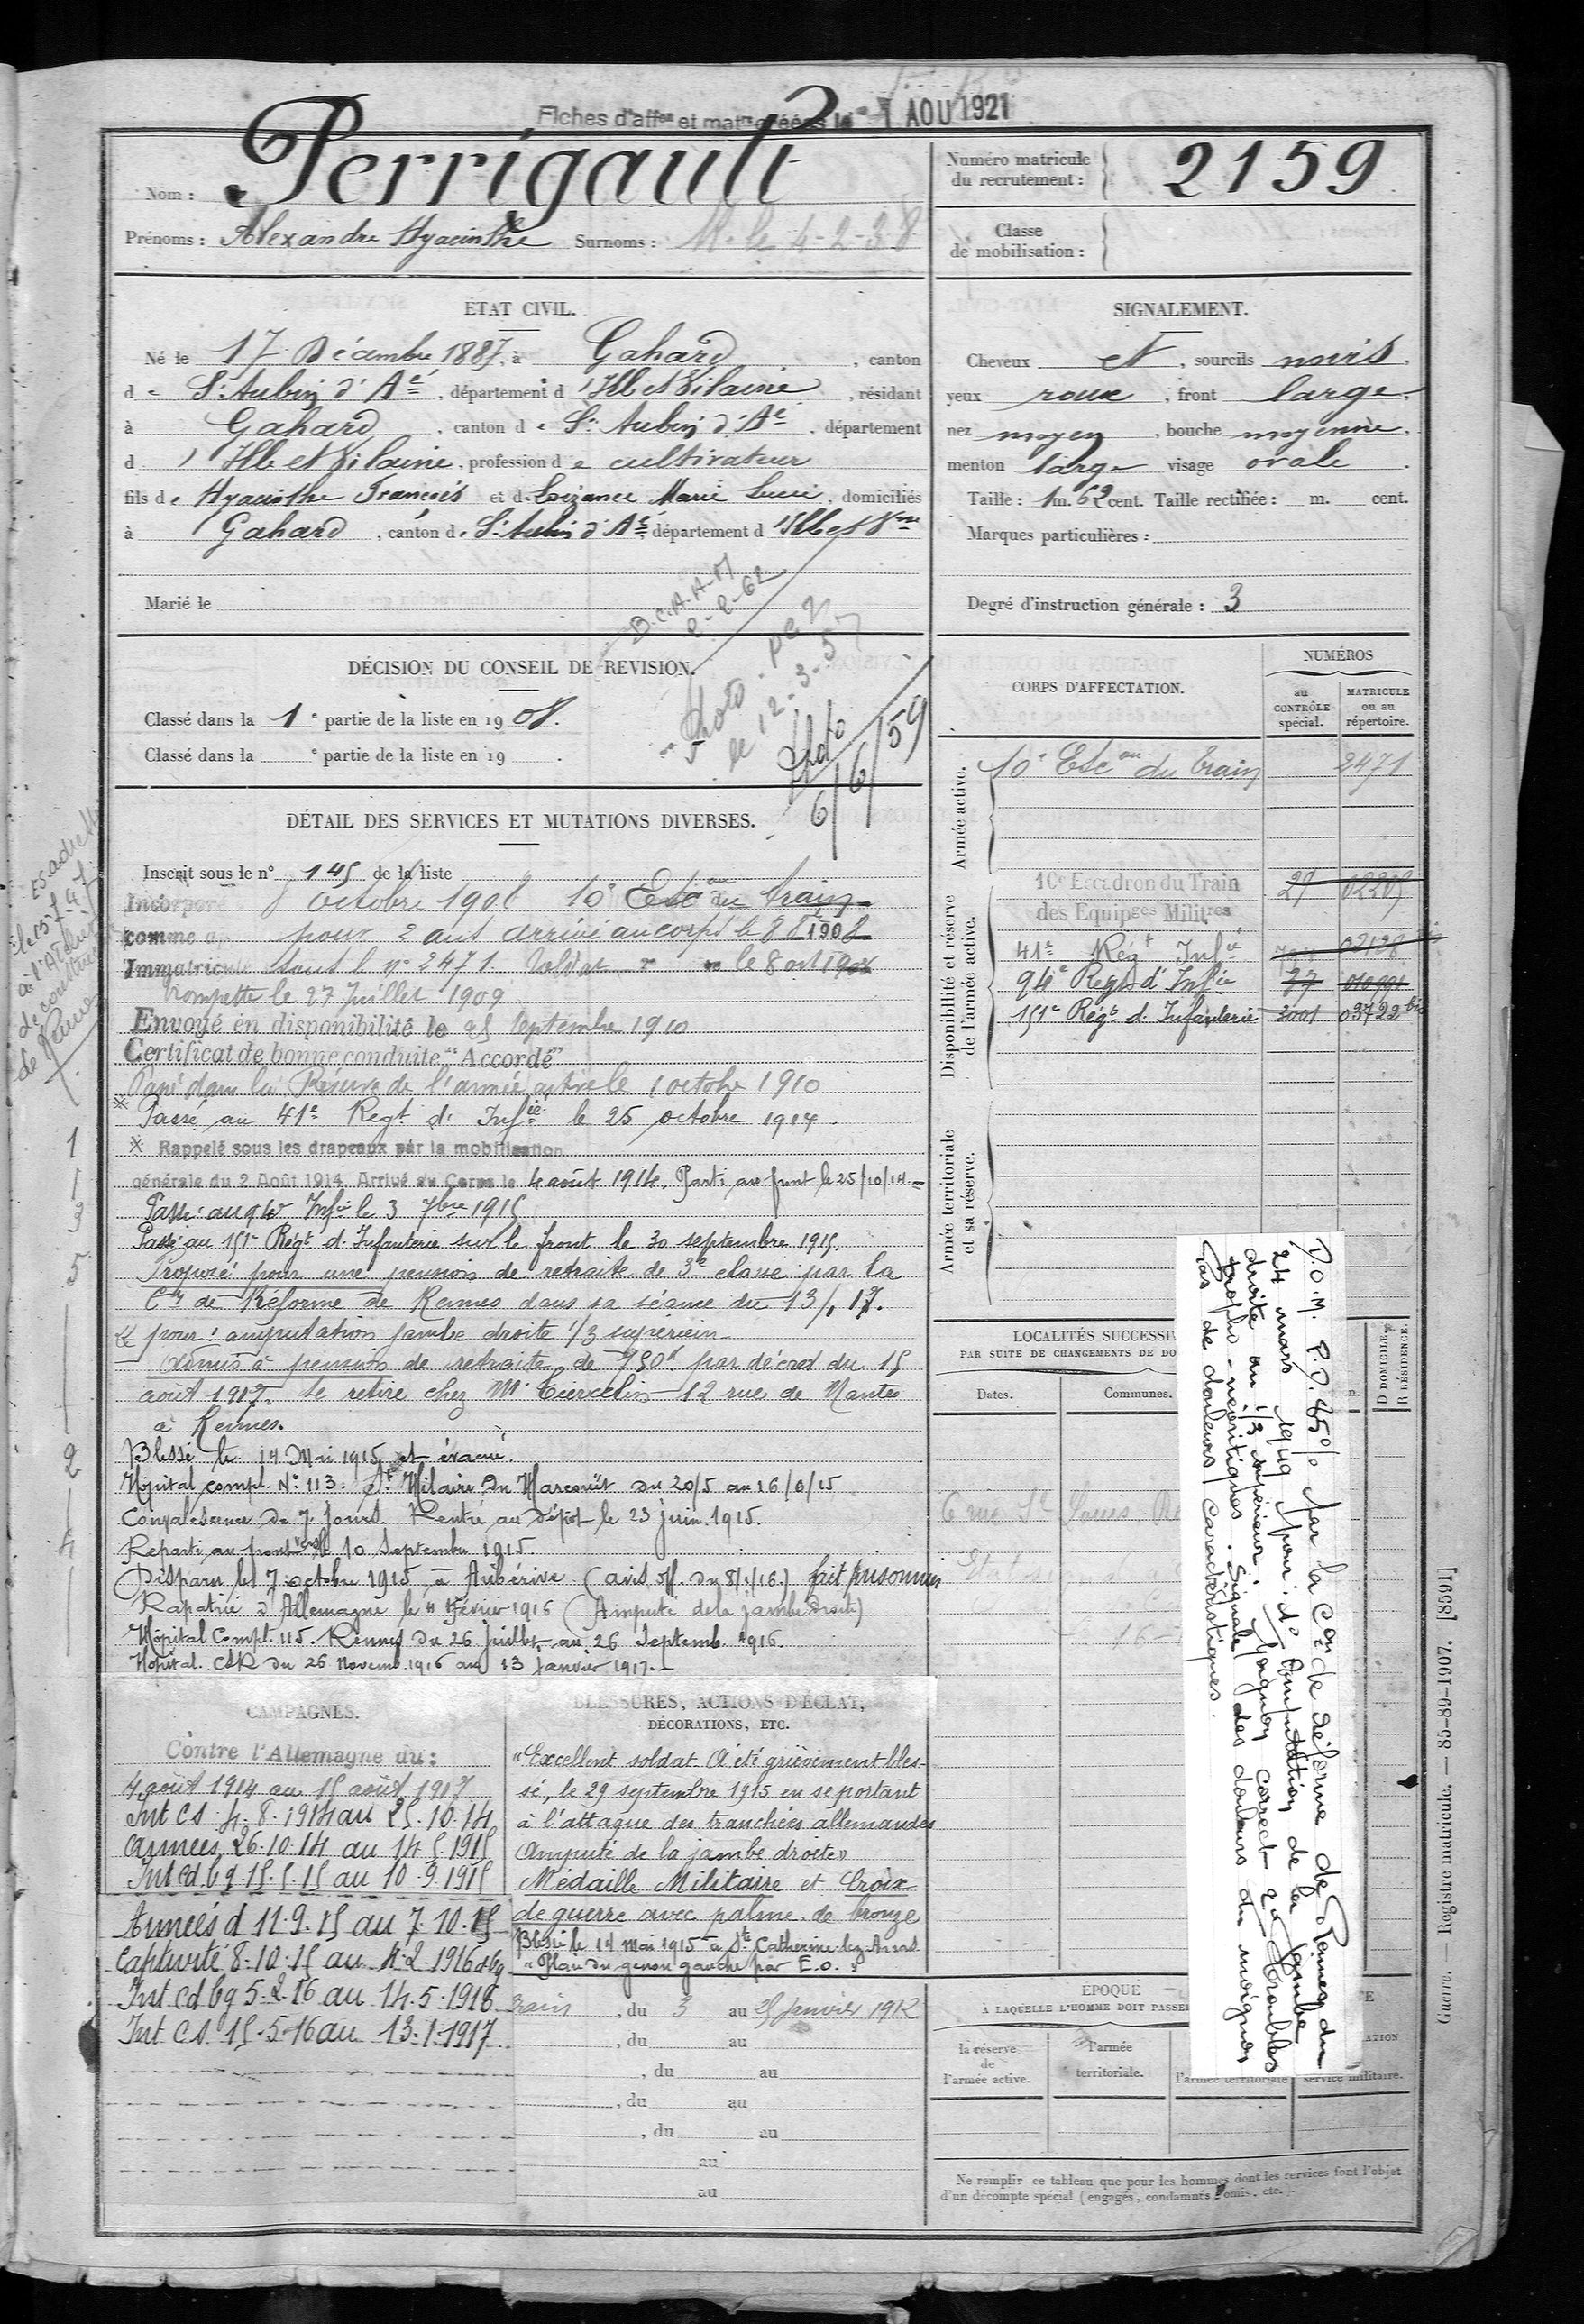 Fiches d'affon et matre créées le 1 AOU 1921
Nom : Perrigault
Prénoms : Alexandre Hyacinthe Surnoms : M. le 4-2-38
Numéro matricule du recrutement : 2159
Classe de mobilisation :
ÉTAT CIVIL.
Né le 17 Décembre 1887, à Gahard, canton
de St Aubin d'Aé, département d'Ille et Vilaine, résidant
à Gahard, canton de St Aubin d'Aé, département
d'Ille et Vilaine, profession de cultivateur
fils de Hyacinthe François et de Loizance Marie Lucie, domiciliés
à Gahard, canton de St Aubin d'Aé, département d'Ille et Vne
Marié le
SIGNALEMENT.
Cheveux et, sourcils noirs,
yeux roux, front large,
nez moyen, bouche moyenne,
menton large visage ovale.
Taille : 1 m. 62 cent. Taille rectifiée : m. cent.
Marques particulières :
Degré d'instruction générale : 3
B.C.A.A.M
2-2-62
Photo
le 12-3-57
Photo
6/6/59
DÉCISION DU CONSEIL DE REVISION.
Classé dans la 1e partie de la liste en 1908.
Classé dans la e partie de la liste en 19 .
DÉTAIL DES SERVICES ET MUTATIONS DIVERSES.
Inscrit sous le n° 145 de la liste
Incorporé 8 octobre 1908 10e Escon du train
comme pour 2 ans arrivé au corps le 8 8bre 1908
Immatriculé sous le n° 2471. Soldat le 8 oct 1908
Trompette le 27 Juillet 1909
Envoyé en disponibilité le 25 Septembre 1910
Certificat de bonne conduite "Accordé"
Passé dans la Réserve de l'armée active le 1 octobre 1910
Passé au 41e Regt d'Infie le 25 octobre 1914.
Rappelé sous les drapeaux par la mobilisation
générale du 2 Août 1914. Arrivé au Corps le 4 août 1914. Parti au front le 25/10/14
Passé au 94e Infie le 3 7bre 1915
Passé au 151e Régt d'Infanterie sur le front le 30 septembre 1915.
Proposé pour une pension de retraite de 3e classe par la
Con de Réforme de Rennes dans sa séance du 13/1 17.
pour : amputation jambe droite 1/3 supérieur
Admis à pension de retraite de 750f par décret du 15
août 1917. Se retire chez Mr Ciercelin 12 rue de Nantes
à Rennes.
Blessé le 14 Mai 1915 et évacué.
Hôpital compl. N° 113. St Hilaire du Harcouët du 20/5 au 16/6/15
Convalescence de 7 jours. Rentré au dépôt le 23 juin 1915.
Reparti au front le 10 Septembre 1915.
Disparu le 7 octobre 1915 à Aubérive (avis off. du 8/1/16.) fait prisonnier
Rapatrié d'Allemagne le 4 Février 1916 (Amputé de la jambe droite)
Hôpital Compl. 115. Rennes du 26 juillet au 26 Septemb. 1916.
Hôpital. CSR du 26 Novemb. 1916 au 13 Janvier 1917.
CORPS D'AFFECTATION.
NUMÉROS
au CONTRÔLE spécial.
MATRICULE ou au répertoire.
Armée active.
10e Escon du train 2471
Disponibilité et réserve de l'armée active.
10e Escadron du Train
des Equipges Militres
41e Régt Infie 02128
94e Regt d'Infie 27
151e Régt d'Infanterie 3001 03722 bis
Armée territoriale et sa réserve.
LOCALITÉS SUCCESSI
PAR SUITE DE CHANGEMENTS DE DO
Dates. Communes.
D DOMICILE.
R RÉSIDENCE.
6 rue St Louis Re
D.O.M. P.D. 85% par la Con de Réforme de Rennes du
24 mars 1949 pour : 1° Amputation de la jambe
droite au 1/3 supérieur. Moignon correct 2° Troubles
tropho-névritiques. Signale des douleurs du moignon
Pas de douleurs caractéristiques.
CAMPAGNES.
Contre l'Allemagne du :
4 août 1914 au 15 août 1917
Int CS 4.8.1914 au 25.10.14
Armées 26.10.14 au 14 5 1915
Int cd bg 15.5.15 au 10.9.1915
Armées d 11.9.15 au 7.10.15
Captivité 8.10.15 au 4.2.1916 d bg
Int cd bg 5.2.16 au 14.5.1916
Int CS. 15.5.16 au 13.1.1917
BLESSURES, ACTIONS D'ÉCLAT,
DÉCORATIONS, ETC.
"Excellent soldat. A été grièvement bles-
sé, le 29 septembre 1915 en se portant
à l'attaque des tranchées allemandes
Amputé de la jambe droite"
Médaille Militaire et Croix
de guerre avec palme de bronze
Blessé le 14 mai 1915 à Ste Catherine-lez-Arras
"Plaie du genou gauche par E.O."
Train, du 3 au 25 janvier 1912
, du au
, du au
, du au
, du au
au
au
ÉPOQUE
À LAQUELLE L'HOMME DOIT PASSE
la réserve de l'armée active.
l'armée territoriale.
l'armée territoriale
service militaire.
Ne remplir ce tableau que pour les hommes dont les services font l'objet
d'un décompte spécial (engagés, condamnés, omis, etc.).
Guerre. — Registre matricule. — 85-89-1907. [8591]
1-13-5-2-4